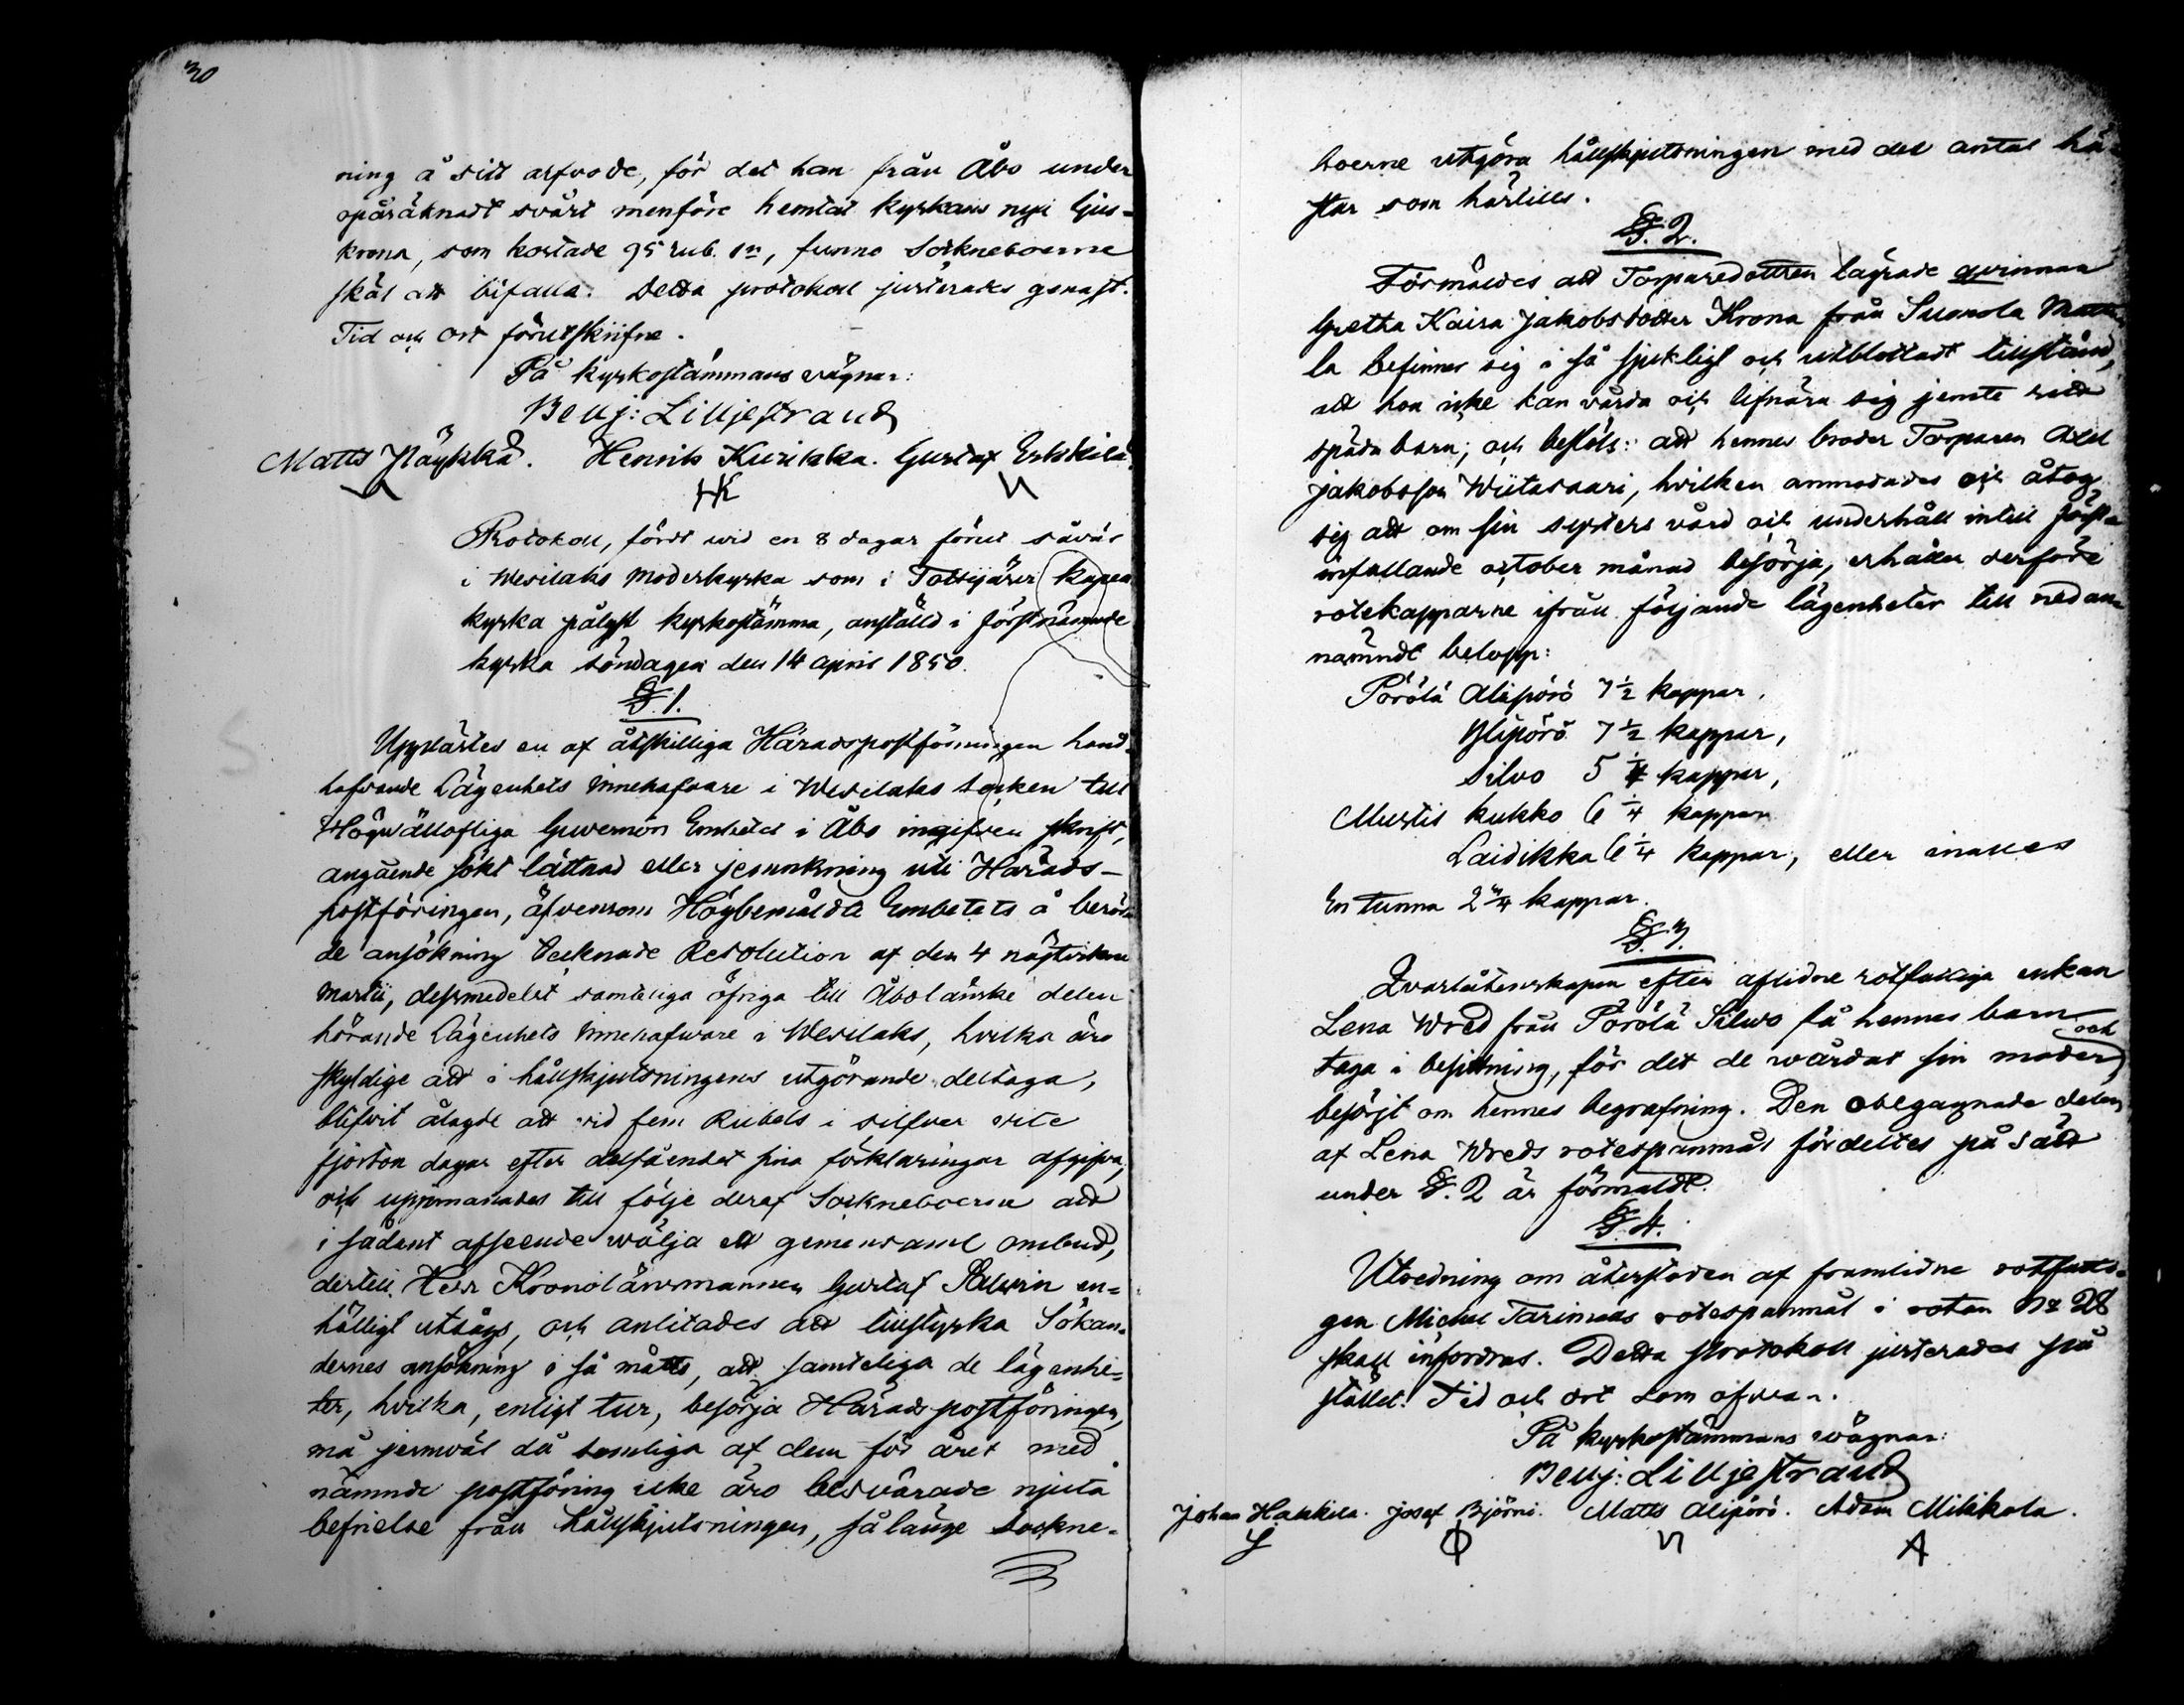 30
ning å sitt arfvode, för det han från Åbo under
opåräknadt svårt menföre hemtat kyrkans nya ljus-
krona, som kostade 95 rub. sr, funno Sockneboerne
skäl att bifalla. Detta protokoll justerades genast.
Tid och ort förutskrifne.
På kyrkostämmans vägnar:
Benj: Lilljestrand
Matts Näykkä. Henrik Kurikka. Gustaf Eskkilä.
HK
Protokoll, fördt wid en 8 dagar förut såväl
i Wesilaks moderkyrka som i Tottijärvi kapell
kyrka pålyst kyrkostämma, anställd i förstnämnde
kyrka söndagen den 14 april 1850.
§. 1.
Upplästes en af åtskilliga Häradspostföringen hand-
hafvande Lägenhets innehafvare i Wesilaks socken till
Högwällofliga Guvernörs Embetet i Åbo ingifven skrift,
angående sökt lättnad eller jemnkning uti Härads-
postföringen, äfvensom Högbemälde Embetets å berör-
de ansökning tecknade Resolution af den 4 nästvikne
Martii, dermedelst samteliga öfriga till Åbo länske delen
hörande Lägenhets innehafware i Wesilaks, hvilka äro
skyldige att i hållskjutsningens utgörande deltaga,
blifvit ålagde att vid fem Rubels i silfver vite
fjorton dagar efter delfåendet sina förklaringar afgifva,
och uppmanades till följe deraf Sockneboerne att
i sådant afseende wälja ett gemensamt ombud,
dertill Herr Kronolänsmannen Gustaf Palmrin en-
hälligt utsågs, och anlitades att tillstyrka Sökan-
dernes ansökning i så måtto, att samteliga de lägenhe-
ter, hvilka, enligt tur, besörja Häradspostföringen,
må jemwäl då somliga af dem för året med
nämnde postföring icke äro besvärade njuta
befrielse från hållskjutsningen, så länge sockne-
boerne utgöra hållskjutsningen med det antal hä-
star som härtills.
§. 2.
Förmäldes att Torparedottren lägrade qvinnan
Gretha Kaisa Jakobsdotter Krona från Suomola Matti-
la befinner sig i så sjukligt och utblottadt tillstånd,
att hon icke kan vårda och lifnära sig jemte sitt
späda barn; och beslöts: att hennes broder Torparen Axel
Jakobsson Wiitasaari, hvilken anmodades och åtog
sig att om sin systers vård och underhåll intill först
infallande october månad besörja, erhåller derföre
rotekapparne ifrån följande lägenheter till nedan-
nämndt belopp:
Pörölä Alipörö 7 1/2 kappar,
Ylipörö 7 1/2 kappar,
Silvo 5 1/4 kappar,
Murtis kukko 6 1/4 kappar
Laidikka 6 1/4 kappar, eller inalles
En tunna 2 3/4 kappar.
§. 3.
Qvarlåtenskapen efter aflidne rotfattiga enkan
Lena Wred från Pörölä Silwo få hennes barn
taga i besittning, för det de wårdat sin moder och
besörjt om hennes begrafning. Den obegagnade delen
af Lena Wreds rotespanmål fördeltes på sätt
under §. 2 är förmäldt.
§. 4.
Utredning om återstoden af framlidne rotfatti-
gen Michel Tarimaas rotespanmål i roten No 28
skall infordras. Detta protokoll justerades på
stället. Tid och ort som ofvan.
På kyrkostämmans wägnar:
Benj: Lilljestrand
Johan Hakkila. Josef Björni. Matts Alipörö. Adam Mikkola.
A